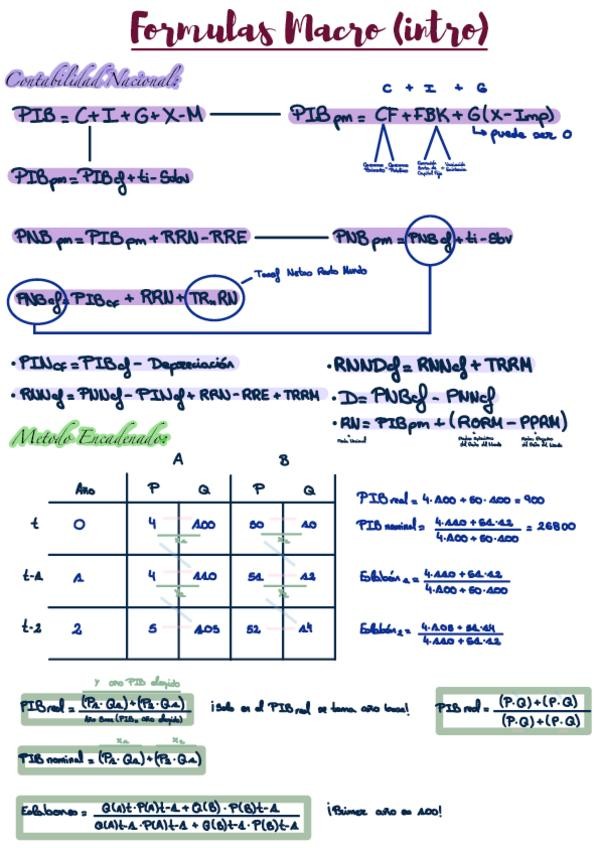 Formulas Macro (intro)
Contabilidad Nacional:
C + I + G
PIB = C+I+G+X-M
PIBpm = CF+FBK+G(X-Imp)
↳ puede ser 0
Formación Bruta de Capital Fijo
Variación Existencias
PIBpm = PIBcf + ti - Sbv
PNBpm = PIBpm + RRN - RRE
PNBpm = PNBcf + ti - Sbv
Transf Netas Resto Mundo
PNBcf = PIBcf + RRN + TRnRN
· PINcf = PIBcf - Depreciación
· RNNDcf = RNNcf + TRRM
· RNNcf = PNNcf - PINcf + RRN - RRE + TRRM
· D = PNBcf - PNNcf
· RN = PIBpm + (RORM - PPRM)
Renta Nacional
Metodo Encadenado:
A B
Año P Q P Q
t 0 4 100 50 10
t-1 1 4 110 51 12
t-2 2 5 105 52 14
PIB real = 4·100 + 50·100 = 900
PIB nominal = 4·110 + 51·12 / 4·100 + 50·100 = 26800
Eslabón1 = 4·110 + 51·12 / 4·100 + 50·100
Eslabón2 = 4·105 + 51·14 / 4·110 + 51·12
y año PIB elegido
PIB real = (P1·Q1)+(P2·Q1) / Año Base (PIB a año elegido)
¡Solo en el PIB real se toma año base!
PIB real = (P·Q)+(P·Q) / (P·Q)+(P·Q)
x1 x2
PIB nominal = (P1·Q1)+(P2·Q1)
Eslabones = Q(A)t·P(A)t-1 + Q(B)·P(B)t-1 / Q(A)t-1·P(A)t-1 + Q(B)t-1·P(B)t-1
¡Primer año es 100!